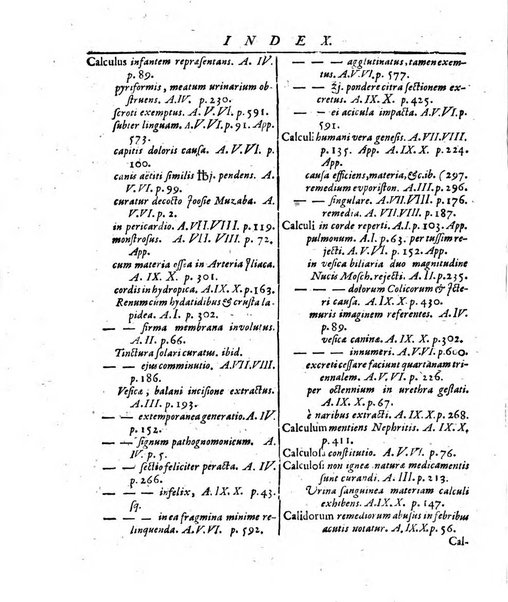 INDEX.
Calculus infantem repræsentans. A. IV.
p. 89.
pyriformis, meatum urinarium ob-
struens. A. IV. p. 230.
scroti exemptus. A. V. VI. p. 591.
subter linguam. A. V. VI. p. 91. App.
573.
capitis doloris causa. A. V. VI. p.
100.
canis aëtiti similis ℔j. pendens. A.
V. VI. p. 99.
curatur decocto Josiæ Muzaba. A.
V. VI. p. 2.
in pericardio. A. VII. VIII. p. 119.
monstrosus. A. VII. VIII. p. 72,
App.
cum materia ossea in Arteria Iliaca.
A. IX. X. p. 301.
cordis in hydropica. A. IX. X. p. 163.
Renum cum hydatidibus & crusta la-
pidea. A. I. p. 302.
— — firma membrana involutus.
A. II. p. 86.
Tinctura solari curatus. ibid.
— — ejus comminutio. A. VII. VIII.
p. 186.
Vesicæ, balani incisione extractus.
A. III. p. 193.
— — extemporanea generatio. A. IV.
p. 152.
— — signum pathognomonicum. A.
IV. p. 5.
— — sectio feliciter peracta. A. IV.
p. 266.
— — — infelix, A. IX. X. p. 43.
sq.
— — — in ea fragmina minime re-
linquenda. A. V. VI. p. 592.
— — — agglutinatus, tamen exem-
tus. A. V. VI. p. 577.
— — ℥j. pondere citra sectionem ex-
cretus. A. IX. X. p. 425.
— — ei acicula impacta. A. V. VI. p.
591.
Calculi humani vera genesis. A. VII. VIII.
p. 135. App. A. IX. X. p. 224.
App.
causa efficiens, materia, &c. ib. (297.
remedium evporiston. A. III. p. 296.
— — singulare. A. VII. VIII. p. 176.
remedia. A. VII. VIII. p. 187.
Calculi in corde reperti. A. I. p. 103. App.
pulmonum. A. I. p. 63. per tussim re-
jecti. A. V. VI. p. 152. App.
in vesica biliaria duo magnitudine
Nucis Mosch. rejecti. A. II. p. 235.
— — dolorum Colicorum & Icte-
ri causa. A. IX. X. p. 430.
muris imaginem referentes. A. IV.
p. 89.
vesicæ caninæ. A. IX. X. p. 302.
— — — innumeri. A. V. VI. p. 600.
excreti cessare faciunt quartanam tri-
ennalem. A. V. VI. p. 226.
per octennium in urethra gestati.
A. IX. X. p. 67.
è naribus extracti. A. IX. X. p. 268.
Calculum mentiens Nephritis. A. IX. X,
p. 411.
Calculosa constitutio. A. V. VI. p. 76.
Calculosi non igneæ naturæ medicamentis
sunt curandi. A. III. p. 213.
Urina sanguinea materiam calculi
exhibens. A. IX. X. p. 147.
Calidorum remediorum abusus in febribus
acutis notatur. A. IX. X. p. 56.
Cal-